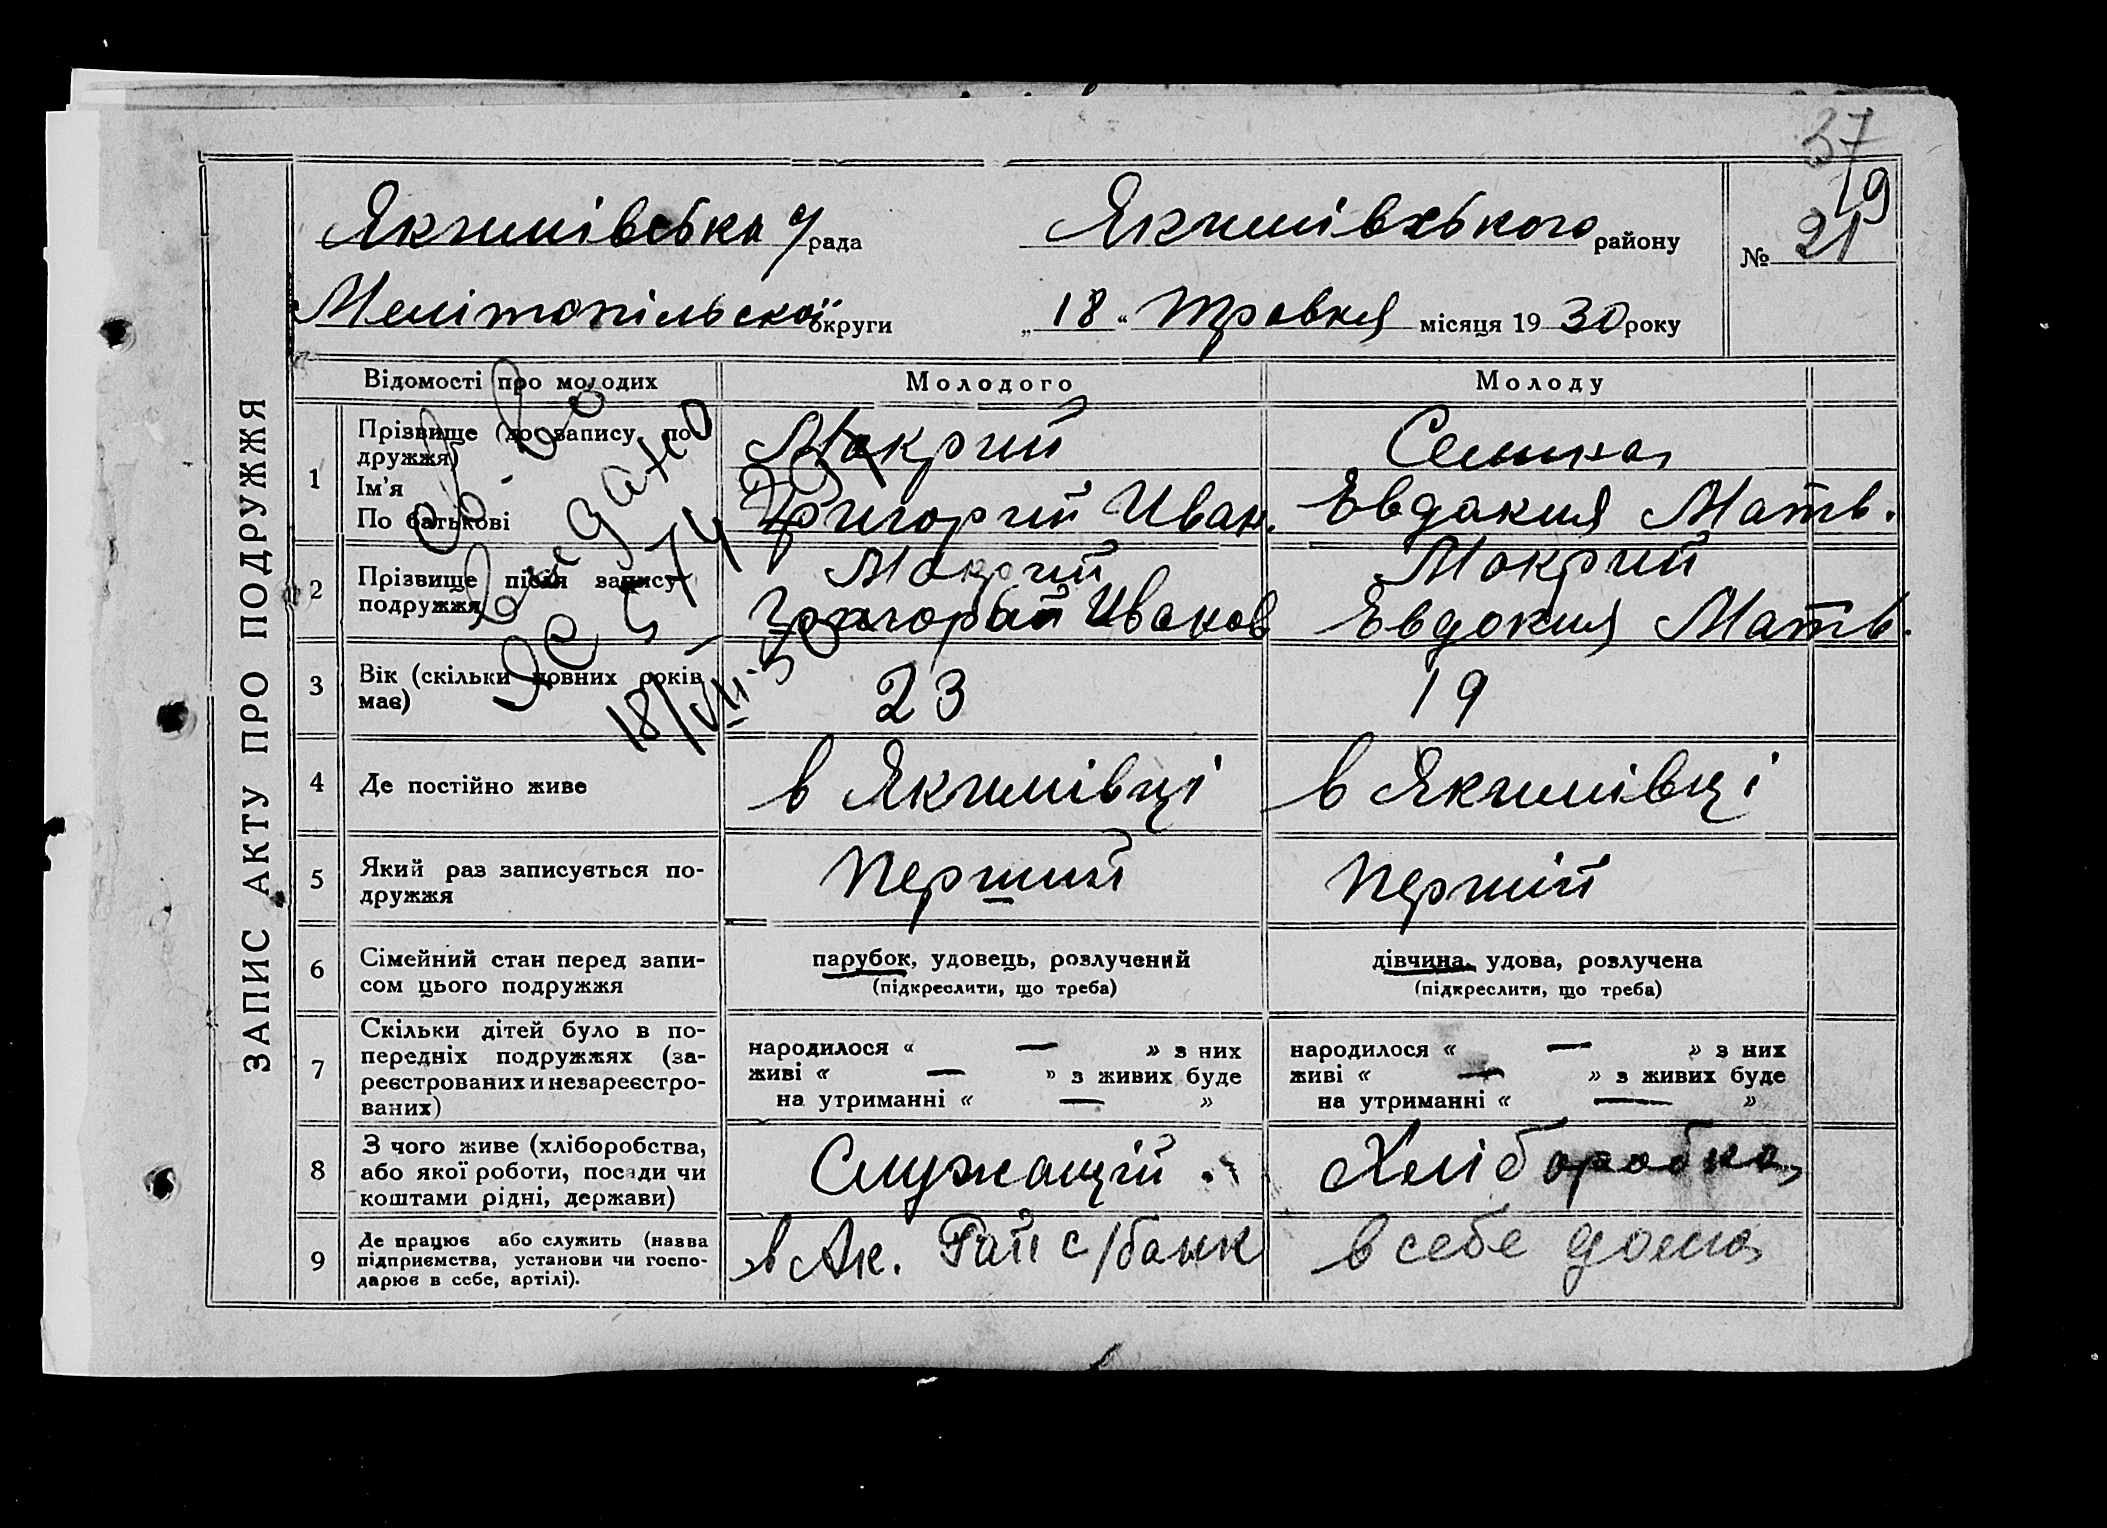 37
19
Якимівська с/рада Якимівського району № 21
Мелітопільскої округи „18“ травня місяця 1930 року
ЗАПИС АКТУ ПРО ПОДРУЖЖЯ
Відомості про молодих Молодого Молоду
1 Прізвище (до запису подружжя) Мокрий
Ім'я
По батькові Григорий Иван. Евдакия Матв.
2 Прізвище після запису подружжя Мокрий Мокрий
Григорий Иванов Евдокия Матв.
3 Вік (скільки повних років має) 23 19
4 Де постійно живе в Якимівці в Якимівці
5 Який раз записується подружжя Перший Першій
6 Сімейний стан перед записом цього подружжя парубок, удовець, розлучений дівчина, удова, розлучена
(підкреслити, що треба) (підкреслити, що треба)
7 Скільки дітей було в попередніх подружжях (зареєстрованих и незареєстрованих)
народилося « — » з них народилося « — » з них
живі « — » з живих буде живі « — » з живих буде
на утриманні « — » на утриманні « — »
8 З чого живе (хліборобства, або якої роботи, посади чи коштами рідні, держави) Служащій Хліборобка
9 Де працює або служить (назва підприємства, установи чи господарює в себе, артілі). в Ак. Рай с/банк в себе дома
видано
18/VII-30